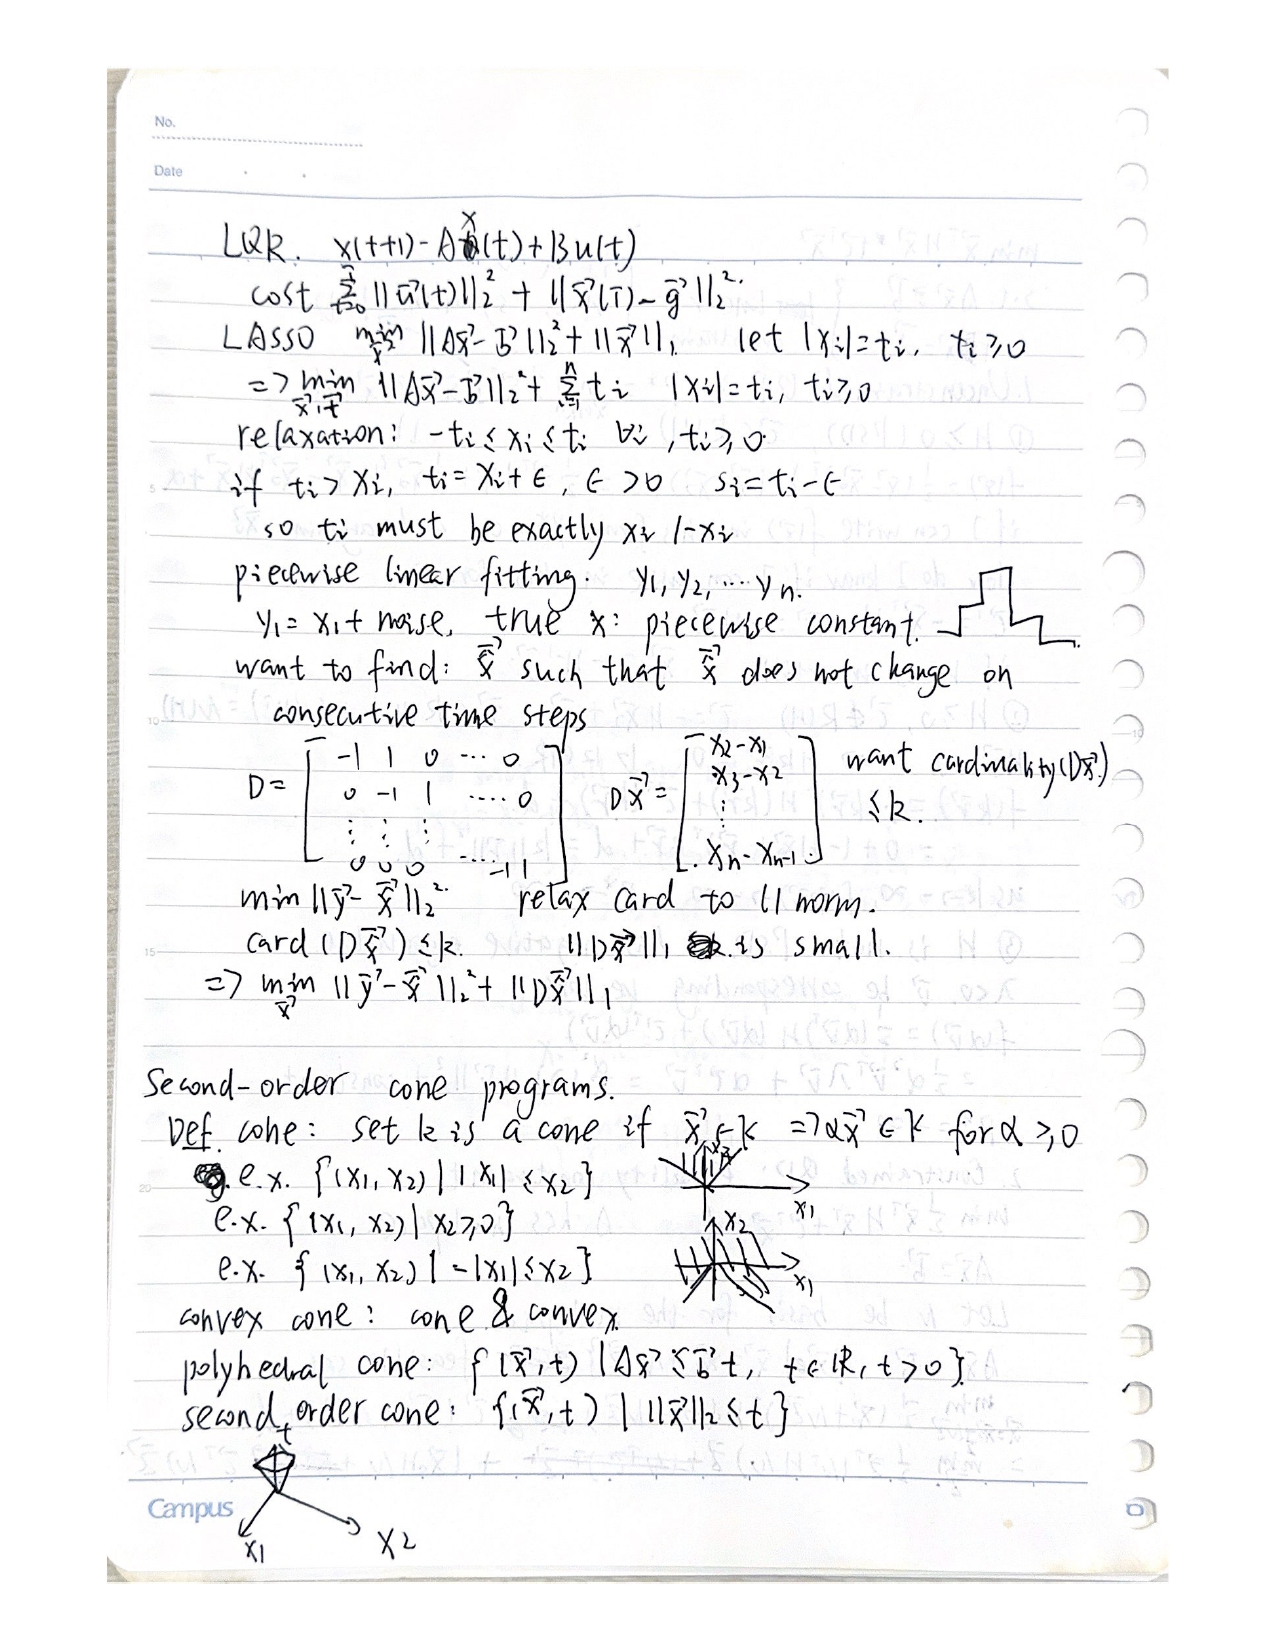 No.
Date
LQR. x(t+1) - Ax(t) + Bu(t)
cost Σ_{t=0}^{T} ||u⃗(t)||₂² + ||x⃗(T) - g⃗||₂².
LASSO min_{x⃗} ||Ax⃗ - b⃗||₂² + ||x⃗||₁. let |xᵢ| = tᵢ. tᵢ ≥ 0
=> min_{x⃗, t⃗} ||Ax⃗ - b⃗||₂² + Σ_{i=1}^{n} tᵢ |xᵢ| = tᵢ, tᵢ ≥ 0
relaxation: -tᵢ ≤ xᵢ ≤ tᵢ ∀i, tᵢ ≥ 0.
if tᵢ > xᵢ, tᵢ = xᵢ + ϵ, ϵ > 0 sᵢ = tᵢ - ϵ
so tᵢ must be exactly xᵢ / -xᵢ
piecewise linear fitting. y₁, y₂, ... yₙ.
y₁ = x₁ + noise, true x: piecewise constant.
want to find: x̂⃗ such that x̂⃗ does not change on
consecutive time steps
D = [ -1 1 0 ... 0 ; 0 -1 1 .... 0 ; ⋮ ⋮ ⋮ ; 0 0 0 .... -1 1 ] Dx⃗ = [ x₂ - x₁ ; x₃ - x₂ ; ⋮ ; xₙ - xₙ₋₁ ] want cardinality(Dx⃗)
≤ k.
min ||y⃗ - x̂⃗||₂². relax card to l1 norm.
card (Dx̂⃗) ≤ k. ||Dx⃗||₁ is small.
=> min_{x̂⃗} ||y⃗ - x̂⃗||₂² + ||Dx̂⃗||₁
Second-order cone programs.
Def. cone: set k is a cone if x⃗ ∈ K => αx⃗ ∈ K for α ≥ 0
e.x. {(x₁, x₂) | |x₁| ≤ x₂}
x₂
x₁
e.x. {(x₁, x₂) | x₂ ≥ 0}
x₂
e.x. {(x₁, x₂) | -|x₁| ≤ x₂}
x₁
convex cone: cone & convex
polyhedral cone: {(x⃗, t) | Ax⃗ ≤ b⃗t, t ∈ ℝ, t > 0}.
second order cone: {(x⃗, t) | ||x⃗||₂ ≤ t}
t
Campus
x₁
x2